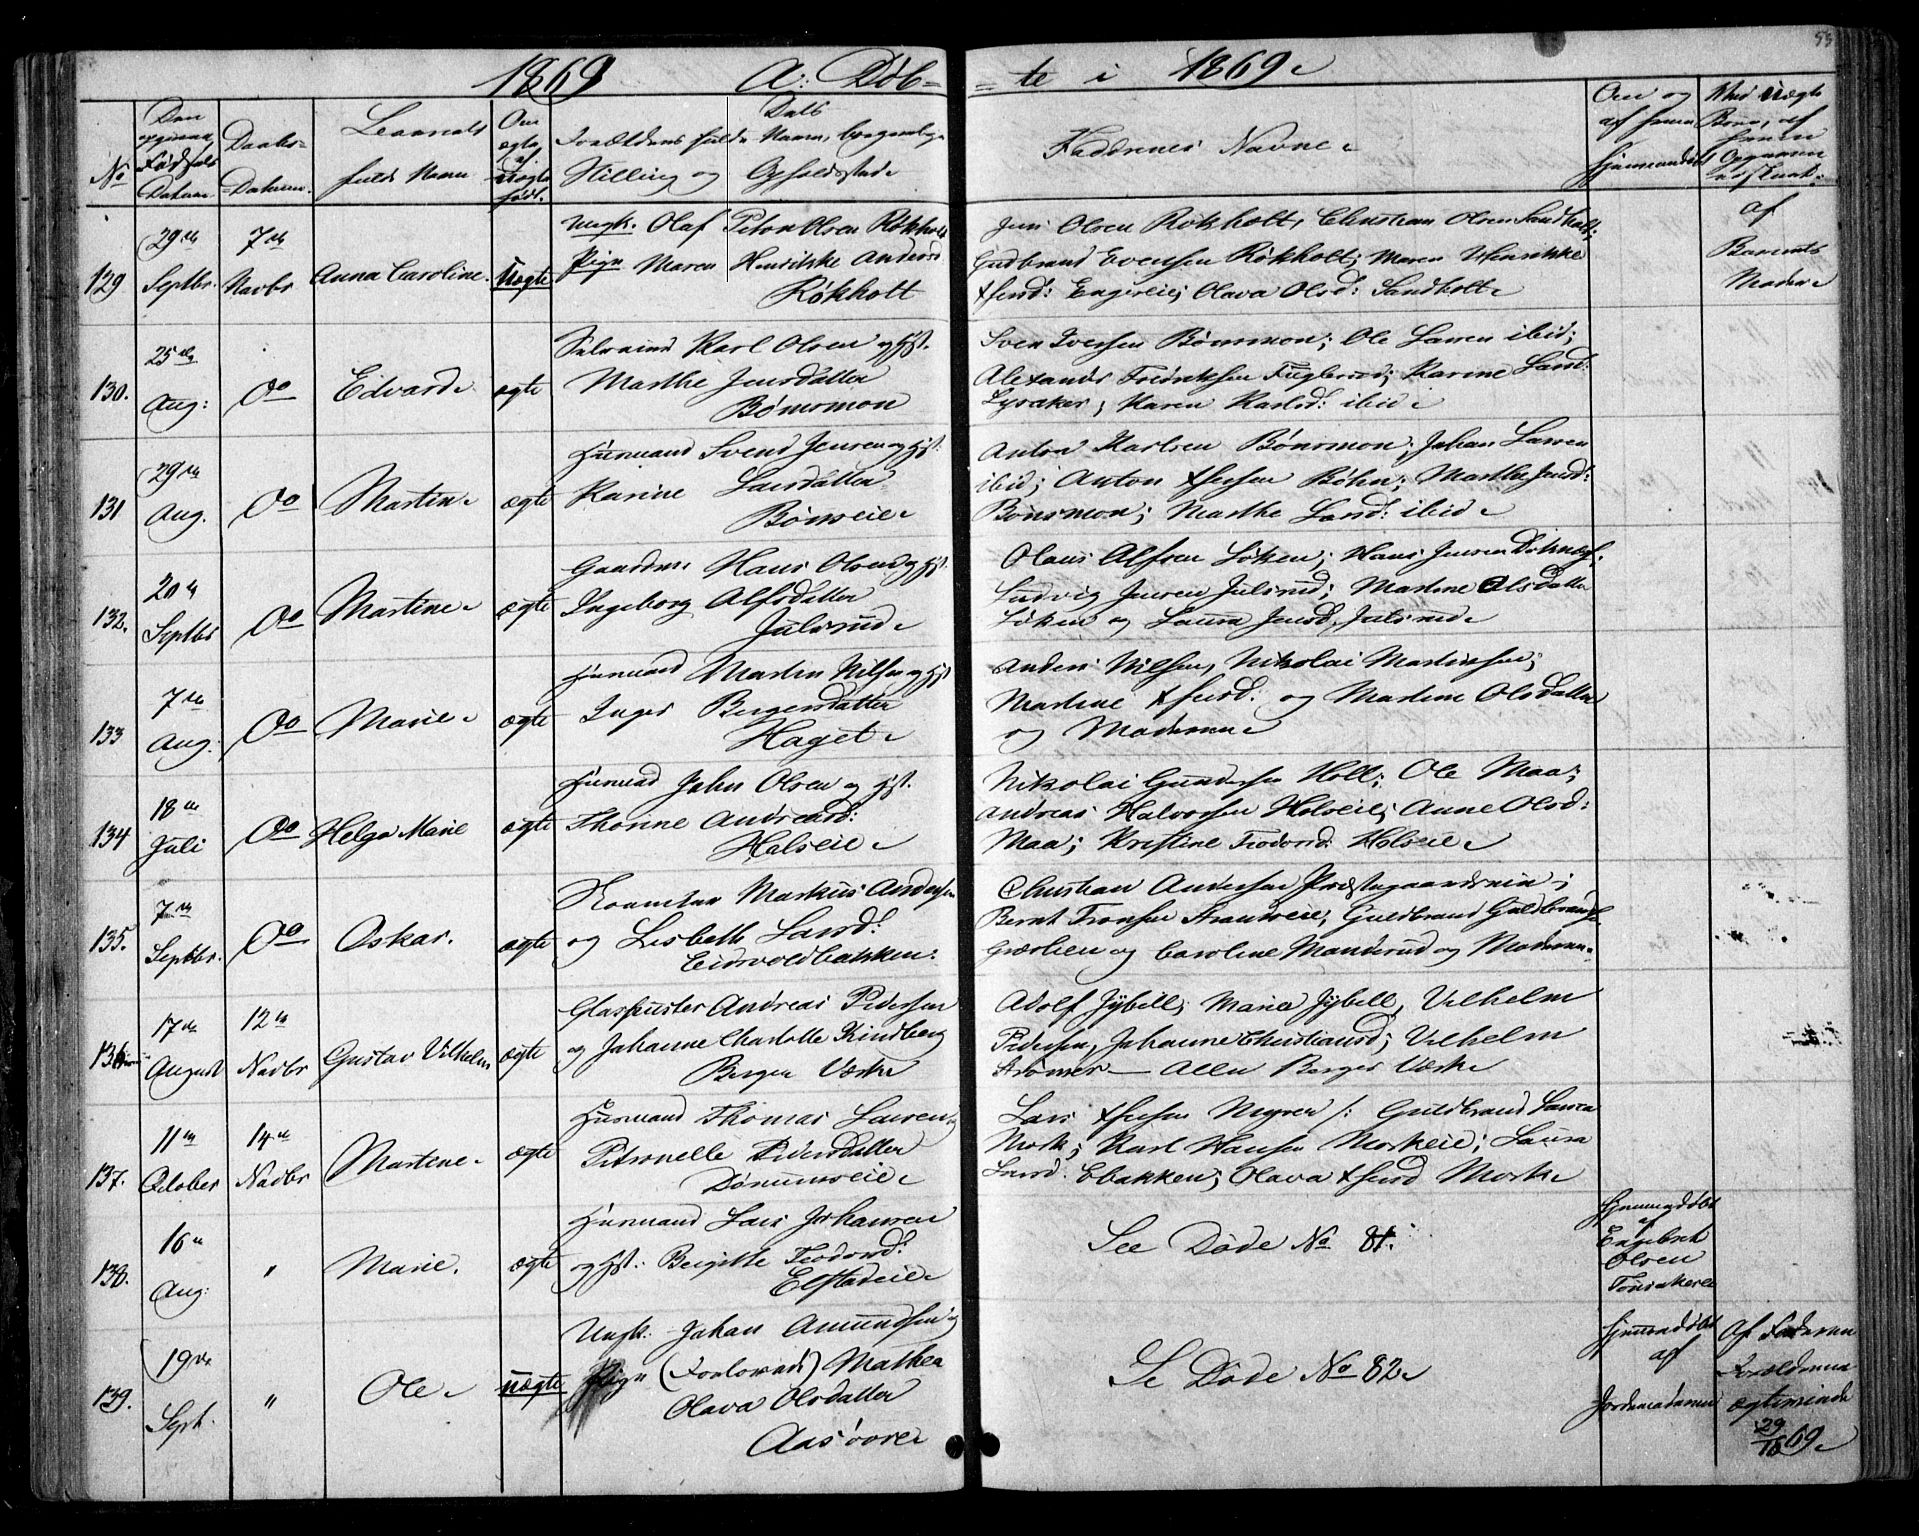 53
1869 A: Døb= =te i 1869
No
Den
Fødsels
Datum
Daabs=
=Datum.
Barnets
fulde Navn
Om
ægte
el.
Uægte
født.
Forældrenes fulde Navn,
Stilling og Opholdssted
Faddernes Navne
Om og
af hvem
hjemmedøbt
Ved Uægte
Børn, af
hvem
Opgaven
af
129
29de
Septbr.
7de
Novbr
Anna Caroline.
Uægte
Ungk. Olaf Peter Olsen Røkholt
Pige Maren Henrikke Andersd
Røkholt
Jens Olsen Røkholt, Christian Olsen Sandholt;
Gudbrand Evensen Røkholt; Maren Henrikke
Engereie; Olava Olsd: Sandholt
af
Barnets
Moder
130.
25de
Aug:
Do
Edvard
ægte
Selveier Karl Olsen og Hst.
Marthe Jensdatter
Bønsmon
Sven Iversen Bønsmon; Ole Larsen ibid;
Alexander Fredriksen Fuglerud; Karine Larsd:
Lysaker; Karen Karlsd: ibid
131
29de
Aug.
Do
Martin
ægte
Husmand Svend Jensen og Hst:
Karine Larsdatter
Bønseie
Anton Karlsen Bønsmon; Johan Larsen
ibid; Anton Bøhn; Marthe Jensd:
Bønsmon; Marthe Larsd: ibid
132.
20de
Septbr
Do
Martine
ægte
Gaardm. Hans Olsen og Hst.
Ingeborg Alfsdatter
Julsrud
Olaus Alfsen Løken; Hans Jensen
Ludvig Jensen Julsrud; Martine Olsdatter
Løken og Laura Jensd. Julsrud
133
7de
Aug:
Do
Marie
ægte
Husmand Martin Nilsen og Hst
Inger Bergersdatter
Haget
Anders Nilsen, Nikolai Martinsen;
Martine og Martine Olsdatter
og Moderen
134
18de
Juli
Do
Helga Marie
ægte
Husmand John Olsen og Hst.
Thorine Andreasd:
Holseie
Nikolai Gundersen Holl; Ole Maa;
Andreas Halvorsen Holseie; Anne Olsd:
Maa; Kristine Teodorsd: Holseie
135.
7de
Septbr.
Do
Oskar.
ægte
Markus Andersen
og Lisbeth Larsd:
Eidsvoldbakken:
Christian Andersen Præstegaardseie;
Bernt Tronsen Strandseie; Guldbrand Guldbrands.
og Caroline Manderud og Moderen
136
17de
August
12te
Novbr
Gustav Vilhelm
ægte
Glaspuster Andreas Pedersen
og Johanne Charlotte Kindberg
Berger Værk
Adolf Jybell; Marie Jybell, Vilhelm
Pedersen, Johanne Christiansd; Vilhelm
Strømer — Alle Berger Værk
137.
11te
October
14de
Novbr
Martine
ægte
Husmand Thomas Larsen og
Petronelle Pedersdatter
Dønnumseie
Lars Myren /: Guldbrand Larsen
Mork; Karl Hansen Morkeie; Laura
Larsd: Ebakken; Olava Mork
138.
16de
Aug:
"
Marie.
ægte
Husmand Lars Johansen
og Hst.: Birgitte Teodorsd:
Elstadeie
See Døde No 81.
Hjemmedøbt
af
Engebret
Olsen
139.
19de
Sept.
"
Ole
uægte
Ungk. Johan Amundsen og
Pige (Forlovede) Mathea
Olava Olsdatter
Aasøvre
Se Døde No 82
Hjemmedøbt
af
Jordemoderen
Af Faderen
Forældrene
ægteviede
29/10 69